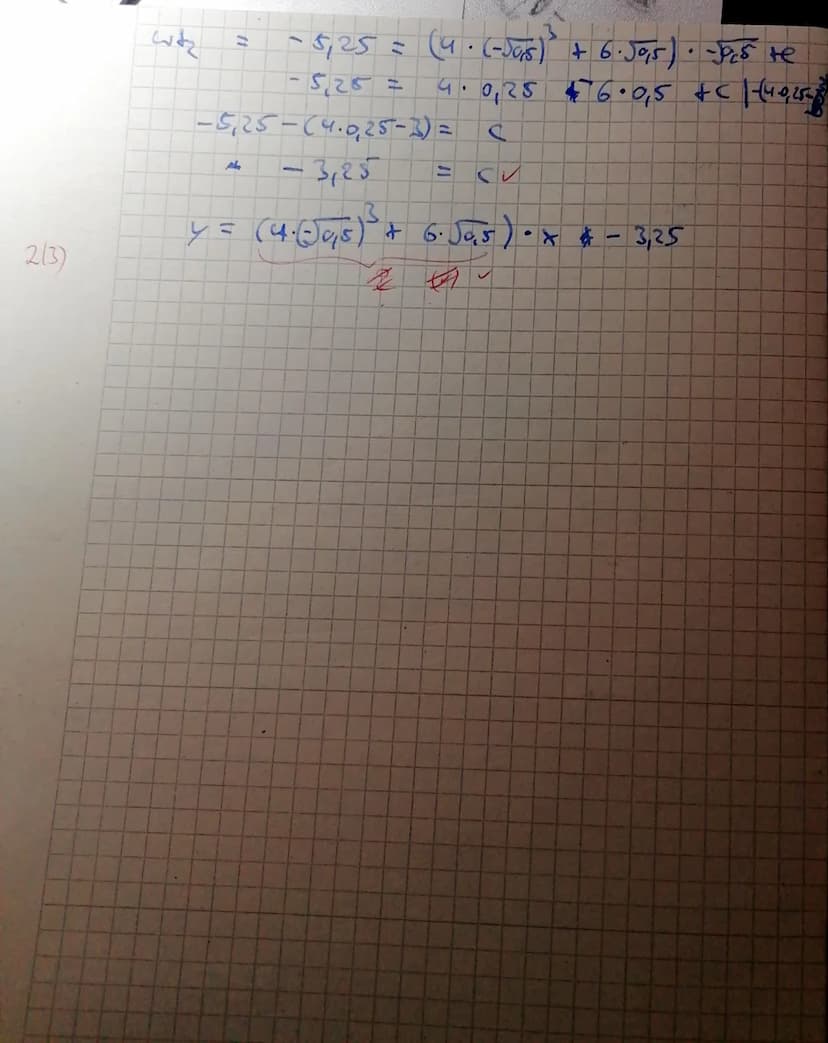 wt₂ = -5,25 = (4·(-√0,5)³ + 6·√0,5)·-√0,5 + c
-5,25 = 4·0,25 - 6·0,5 + c |-(4·0,25-
-5,25-(4·0,25-3) = c
-3,25 = c ✓
y = (4·(-√0,5)³ + 6·√0,5)·x - 3,25
2(3)
✓